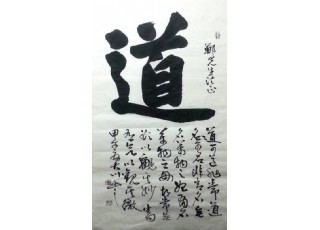 道
鄭先生法正
道可道非常道
名可名非常名無
名萬物之始有名
萬物之母故常無
欲以觀其妙常
有欲以觀其徼